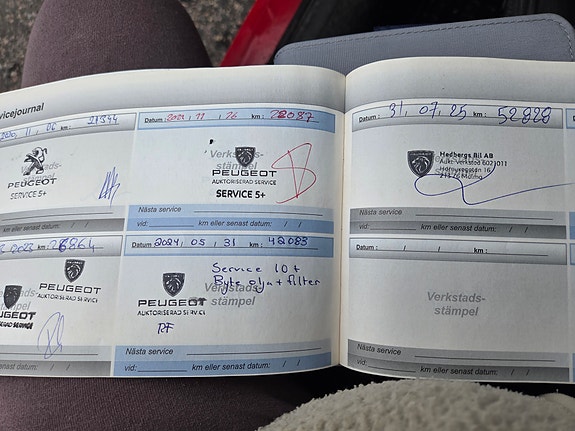 vicejournal
11 06 km: 21344
Verkstads-
stämpel
PEUGEOT
SERVICE 5+
Datum: 2021, 11 / 26 km: 28087
Verkstads-
PEUGEOT
AUKTORISERAD SERVICE
SERVICE 5+
Nästa service
vid: km eller senast datum: / /
km eller senast datum: / /
2023 km:
PEUGEOT
AUKTORISERAD SERVICE
UGEOT
SERAD SERVICE
Datum: 2024, 05, 31 km: 42083
Service 10+
Byte olja + filter
Verkstads-
stämpel
PEUGEOT
AUKTORISERAD SERVICE
RF
Nästa service
vid: km eller senast datum: / /
km eller senast datum: / /
Datum: 31, 07, 25 km: 52828
Hedbergs Bil AB
Aukt. Verkstad 602J011
Nästa service
vid: km eller senast datum: / /
Datum: / / km:
Verkstads-
stämpel
Nästa service
vid: km eller senast datum: / /